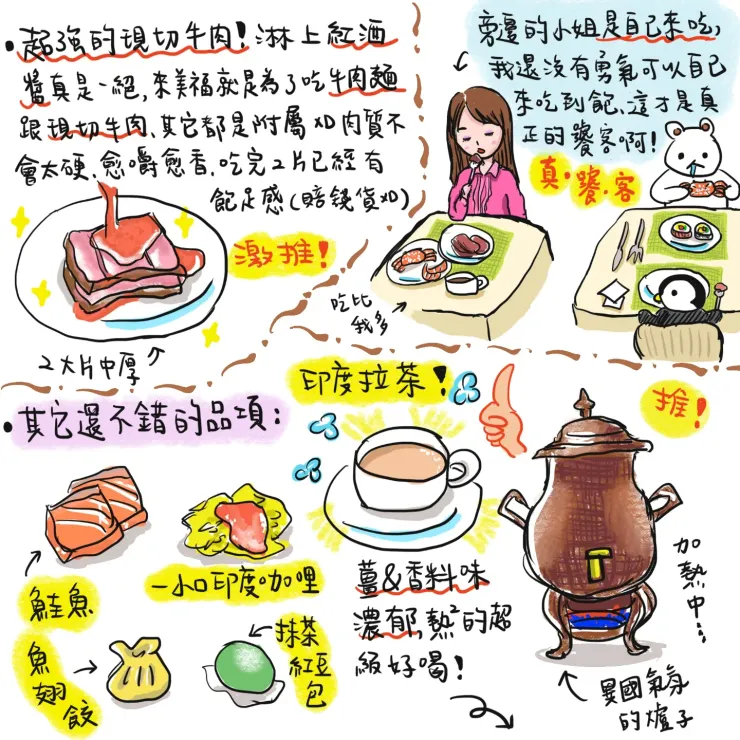 •超強的現切牛肉!淋上紅酒
醬真是一絕,來美福就是為了吃牛肉麵
跟現切牛肉、其它都是附屬XD肉質不
會太硬、愈嚼愈香、吃完2片已經有
飽足感(賠錢貨XD)
激推!
2大片中厚
旁邊的小姐是自己來吃,
我還沒有勇氣可以自己
來吃到飽、這才是真
正的饕客啊!
真•饕•客
吃比
我多
•其它還不錯的品項:
鮭魚
一小口印度咖哩
魚
翅
餃
抹茶
紅豆
包
印度拉茶!
薑&香料味
濃郁,熱²的超
級好喝!
推!
加
熱
中…
異國氣氛
的爐子